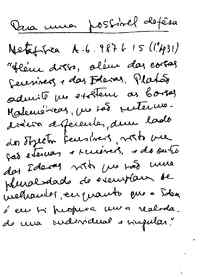 Para uma possível defesa
Metafísica A. 6. 987 b 15 (1º 431)
"Além disso, além das coisas
sensíveis e das Ideias, Platão
admite que existem as Coisas
Matemáticas, que são interme-
diárias diferindo, dum lado
dos objetos sensíveis, visto que
são eternas e imóveis, e do outro
das Ideias visto que são uma
pluralidade de exemplares se-
melhantes, enquanto que a Ideia
é em si própria uma realida-
de una individual e singular."